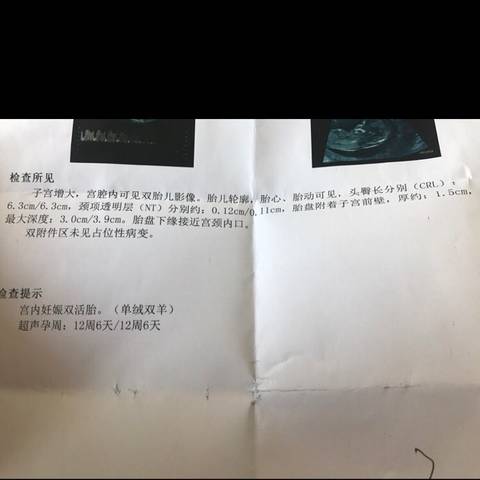 检查所见
子宫增大，宫腔内可见双胎儿影像。胎儿轮廓，胎心、胎动可见，头臀长分别（CRL）：
6.3cm/6.3cm，颈项透明层（NT）分别约：0.12cm/0.11cm，胎盘附着子宫前壁，厚约：1.5cm，
最大深度：3.0cm/3.9cm。胎盘下缘接近宫颈内口。
双附件区未见占位性病变。
检查提示
宫内妊娠双活胎。（单绒双羊）
超声孕周：12周6天/12周6天